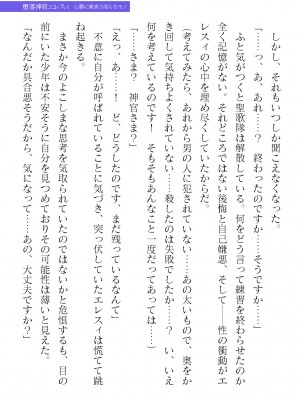 堕落神官エレスィ
しかし、それもいつしか聞こえなくなった。
「…っ、あ、あれ…？　終わったのですか……そうですか……」
ふと気がつくと聖歌隊は解散している。何をどう言って練習を終わらせたのか
全く記憶がない。それどころではない後悔と自己嫌悪、そして――性の衝動がエ
レスィの心中を埋め尽くしていたからだ。
（考えてみたら、あれから男の人に犯されていない……あの太いもので、奥をか
き回して気持ちよくされていない……殺したのは失敗でしたか……い、いえ、
何を考えているのです！　そもそもあんなこと一度だってあっては……）
「……さま？　神官さま？」
「えっ、あ……！　ど、どうしたのです、まだ残っているなんて」
不意に自分が呼ばれていることに気づき、突っ伏していたエレスィは慌てて跳
ね起きる。
まさか今のよこしまな思考を気取られていたのではないかと危惧するも、目の
前にいた少年は不安そうに自分を見つめておりその可能性は薄いと見えた。
「なんだか具合悪そうだから、気になって……あの　大丈夫ですか？」